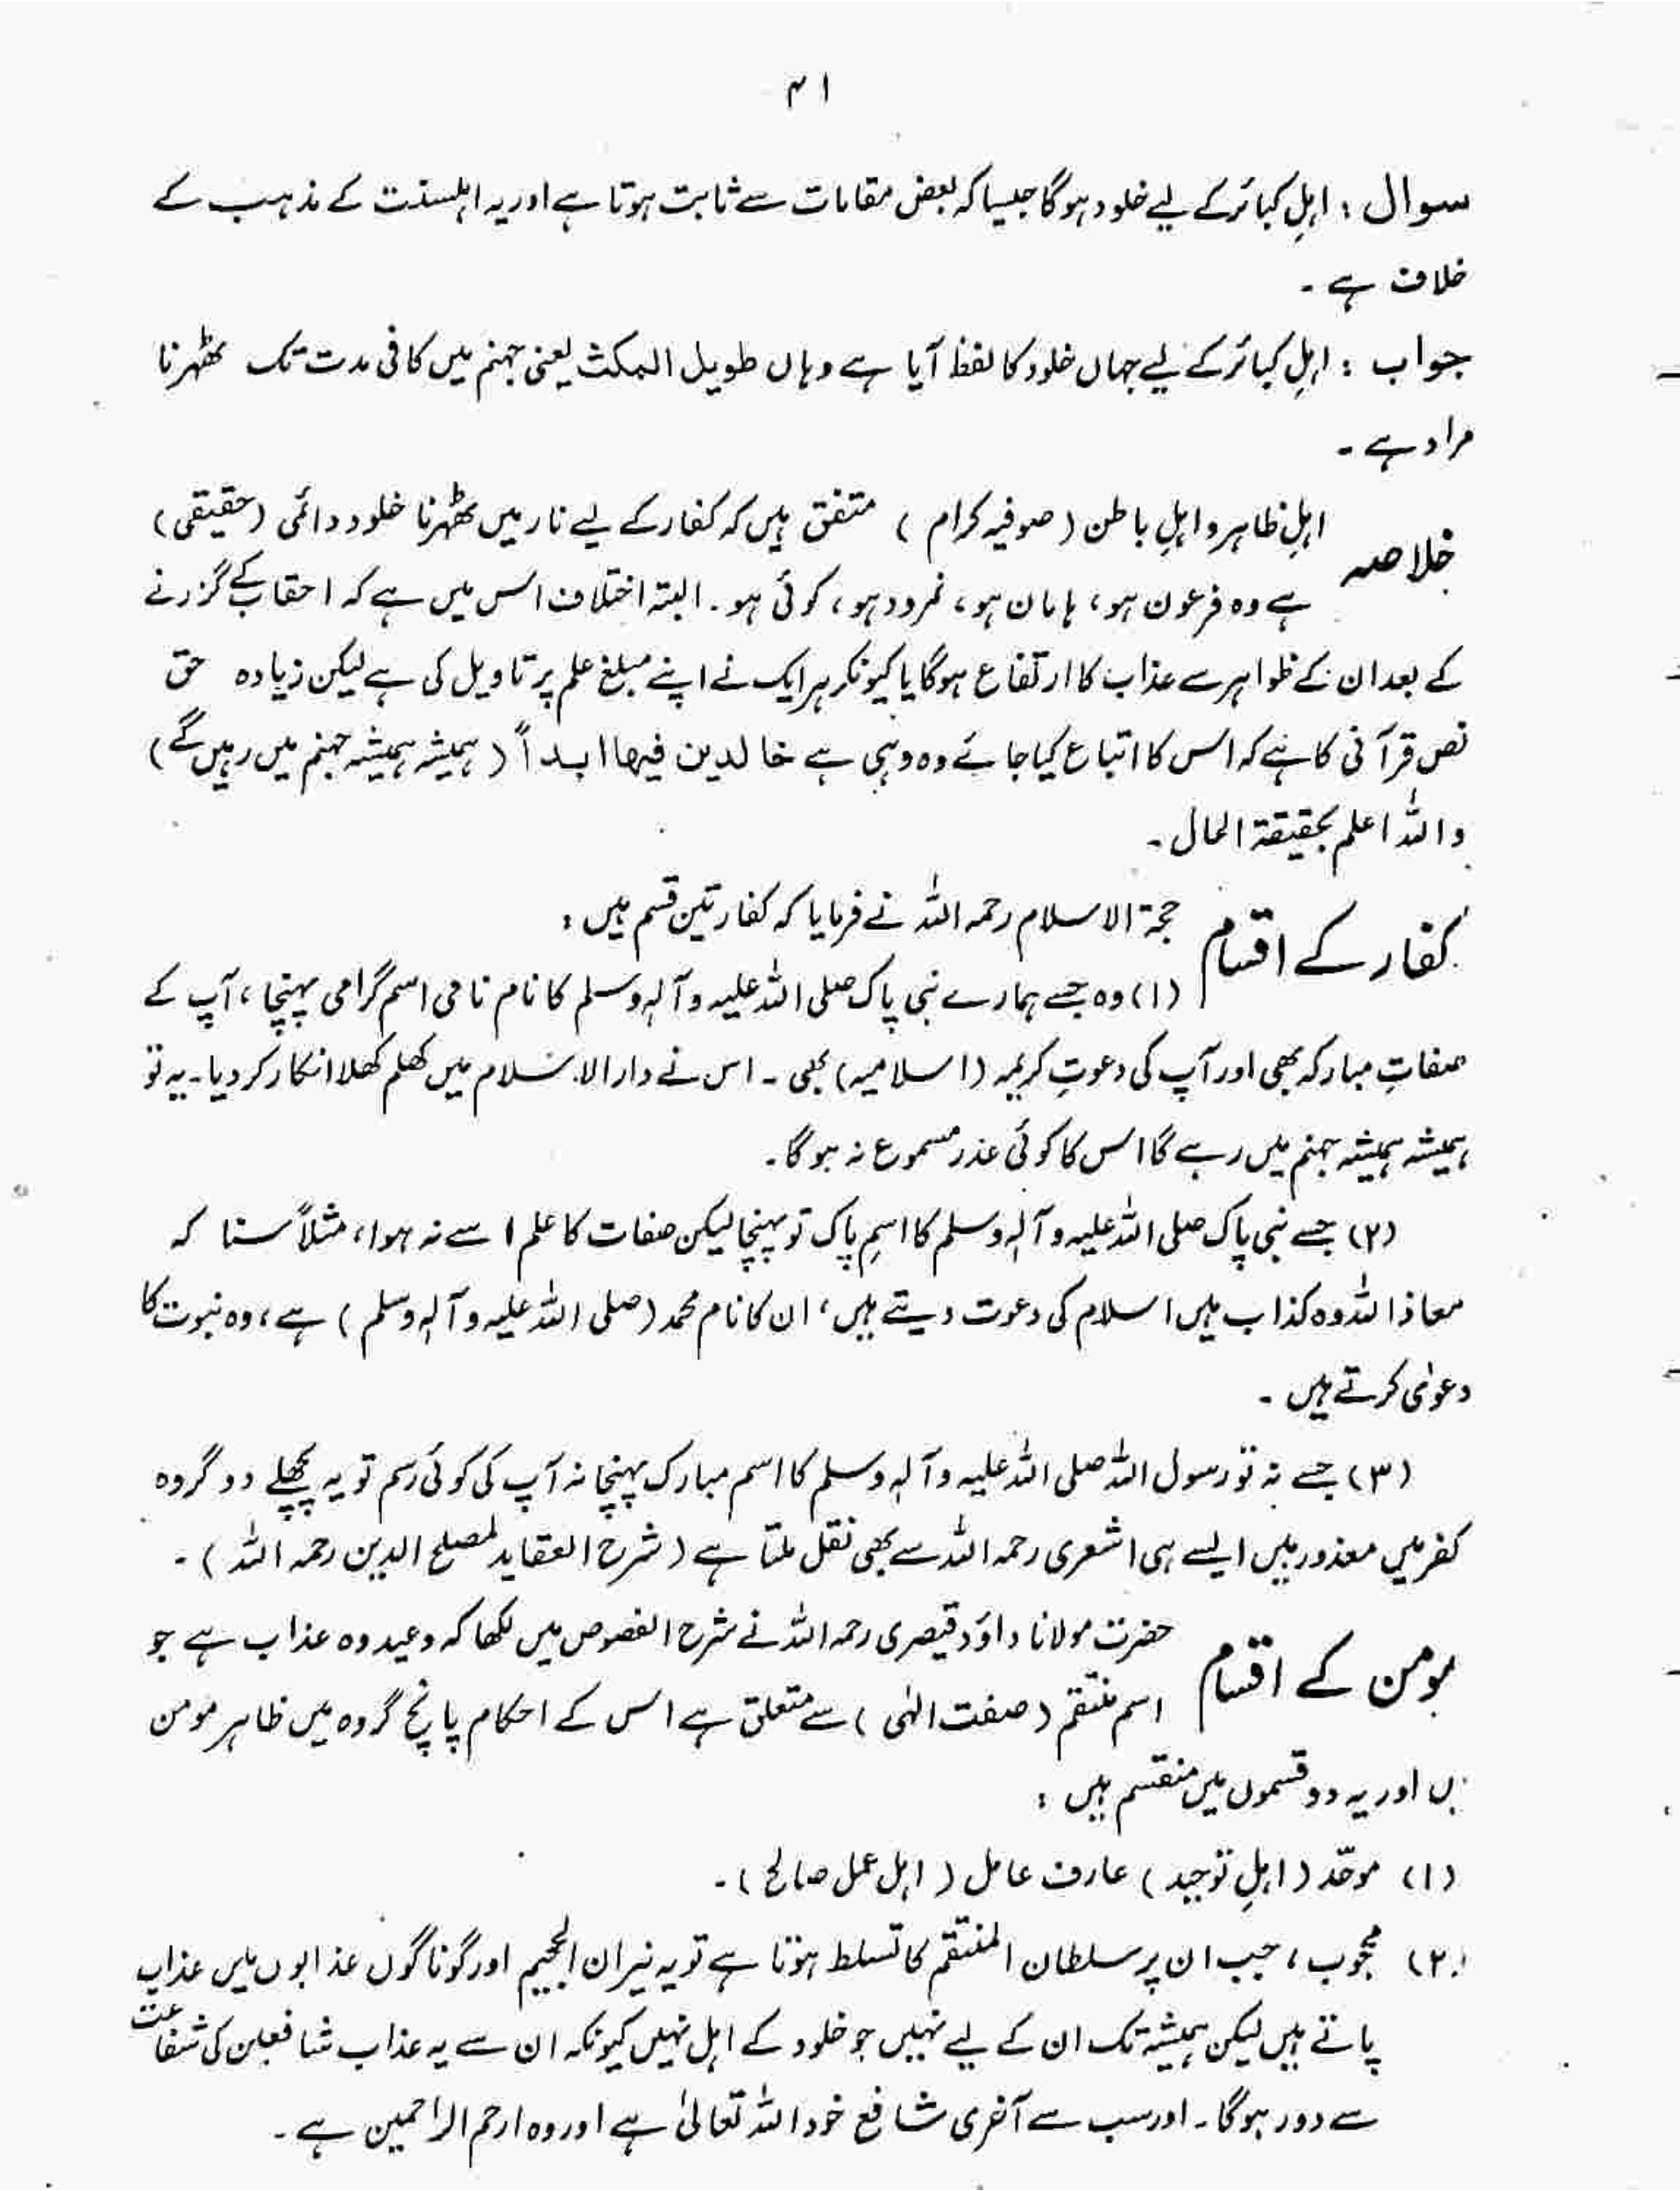 ۴۱
سوال : اہلِ کبائر کے لیے خلود ہوگا جیسا کہ بعض مقامات سے ثابت ہوتا ہے اور یہ اہلسنّت کے مذہب کے
خلاف ہے ۔
جواب : اہلِ کبائر کے لیے جہاں خلود کا لفظ آیا ہے وہاں طویل المکث یعنی جہنم میں کافی مدت تک ٹھہرنا
مراد ہے ۔
خلاصہ اہلِ ظاہر و اہلِ باطن ( صوفیہ کرام ) متفق ہیں کہ کفار کے لیے نار میں ٹھہرنا خلود دائمی (حقیقی)
ہے وہ فرعون ہو ، ہامان ہو ، نمرود ہو ، کوئی ہو ۔ البتہ اختلاف اس میں ہے کہ احقاب کے گزرنے
کے بعد ان کے ظواہر سے عذاب کا ارتفاع ہوگا یا کیونکر ہر ایک نے اپنے مبلغ علم پر تاویل کی ہے لیکن زیادہ حق
نص قرآنی کا ہے کہ اس کا اتباع کیا جائے وہ وہی ہے خالدین فیھا ابداً ( ہمیشہ ہمیشہ جہنم میں رہیں گے )
واللہ اعلم بحقیقۃ الحال ۔
کفار کے اقسام حجۃ الاسلام رحمہ اللہ نے فرمایا کہ کفار تین قسم ہیں :
(۱) وہ جسے ہمارے نبی پاک صلی اللہ علیہ وآلہٖ وسلم کا نام نامی اسم گرامی پہنچا ، آپ کے
صفاتِ مبارکہ بھی اور آپ کی دعوتِ کریمہ (اسلامیہ) بھی ۔ اس نے دارالاسلام میں کھلم کھلا انکار کر دیا ۔ یہ تو
ہمیشہ ہمیشہ جہنم میں رہے گا اس کا کوئی عذر مسموع نہ ہوگا ۔
(۲) جسے نبی پاک صلی اللہ علیہ وآلہٖ وسلم کا اسمِ پاک تو پہنچا لیکن صفات کا علم اسے نہ ہوا ، مثلاً سنا کہ
معاذ اللہ وہ کذاب ہیں اسلام کی دعوت دیتے ہیں ، ان کا نام محمد (صلی اللہ علیہ وآلہٖ وسلم ) ہے ، وہ نبوت کا
دعوٰی کرتے ہیں ۔
(۳) جسے نہ تو رسول اللہ صلی اللہ علیہ وآلہٖ وسلم کا اسم مبارک پہنچا نہ آپ کی کوئی رسم تو یہ پچھلے دو گروہ
کفر میں معذور ہیں ایسے ہی اشعری رحمہ اللہ سے بھی نقل ملتا ہے ( شرح العقاید لمصلح الدین رحمہ اللہ ) ۔
مومن کے اقسام حضرت مولانا داؤد قیصری رحمہ اللہ نے شرح الفصوص میں لکھا کہ وعید وہ عذاب ہے جو
اسم منتقم ( صفت الٰہی ) سے متعلق ہے اس کے احکام پانچ گروہ میں ظاہر مومن
ں اور یہ دو قسموں میں منقسم ہیں :
(۱) موحّد ( اہلِ توحید ) عارف عامل ( اہل عمل صالح ) ۔
(۲) محجوب ، جب ان پر سلطان المنتقم کا تسلط ہوتا ہے تو یہ نیران الجحیم اور گوناگوں عذابوں میں عذاب
پاتے ہیں لیکن ہمیشہ تک ان کے لیے نہیں جو خلود کے اہل نہیں کیونکہ ان سے یہ عذاب شافعین کی شفاعت
سے دور ہوگا ۔ اور سب سے آخری شافع خود اللہ تعالیٰ ہے اور وہ ارحم الراحمین ہے ۔